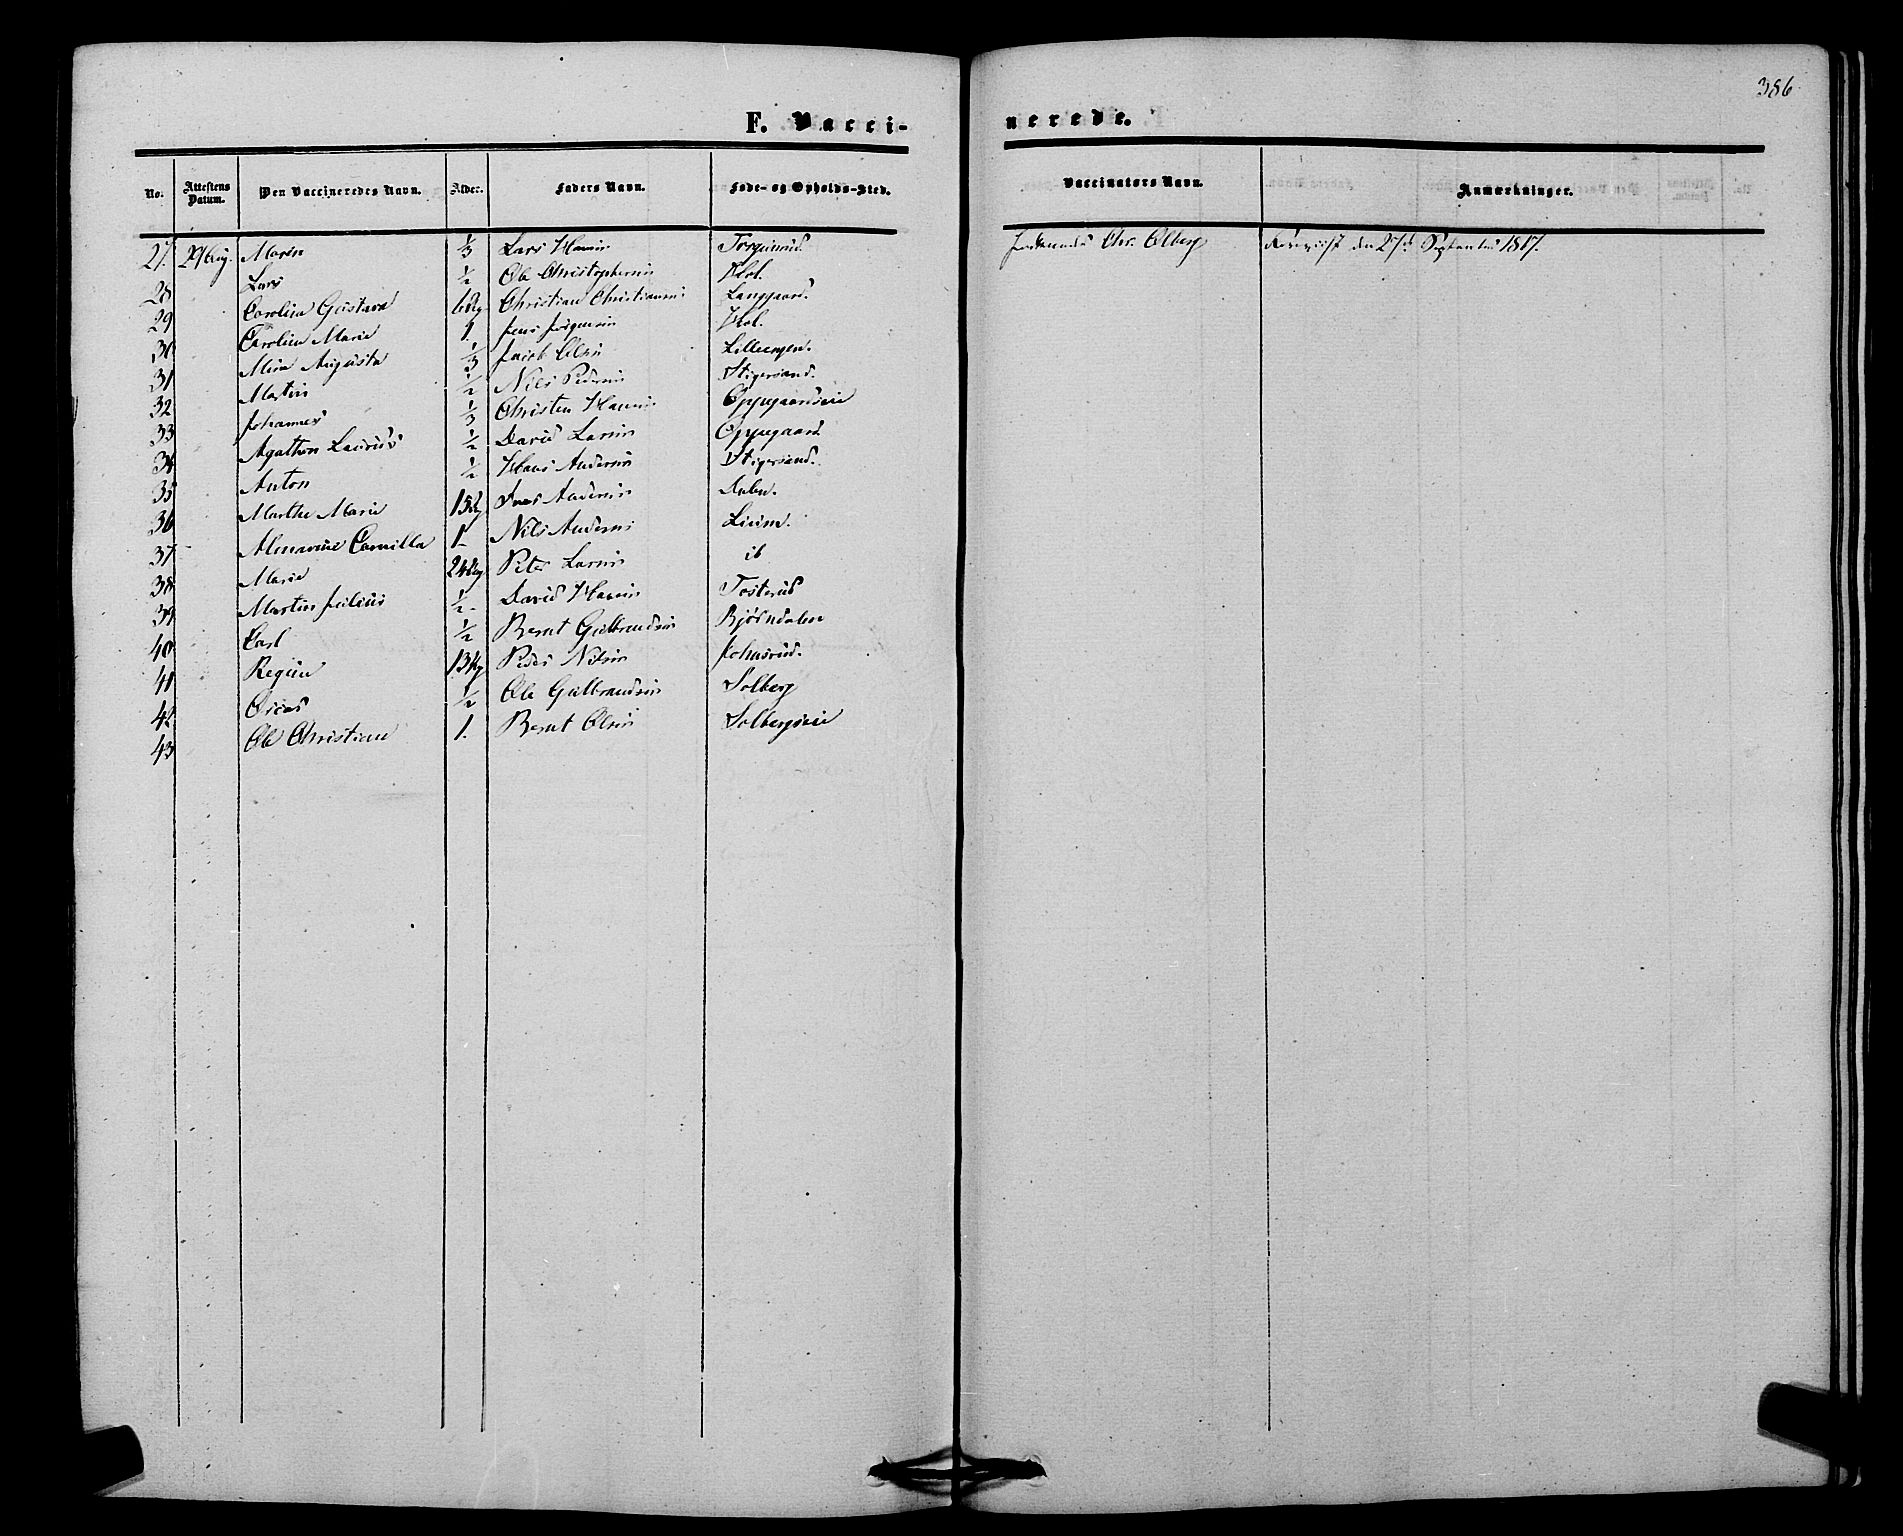 386
F. Vacci-
nerede.
No. Attestens Datum. Den Vaccineredes Navn. Alder. Faders Navn. Føde- og Opholds-Sted. Vaccinators Navn. Anmærkninger.
27. 29 Aug. Maren 1/3 Lars Hansen Chr. Olberg den 27d September
28 Lars 1/2 Ole Christophersen Hol.
29 Carolina Gustava Christian Christiansen Langaard.
30 Caroline Marie 1. Jens Jørgensen Hol.
31 Mina Augusta 1/3 Jacob Olsen Lilleengen.
32 Martin 1/2 Nils Pedersen Stigersand.
33 Johannes 1/3 Christen Hansen Oppegaardseie
34 Agathon Laurits 1/2 David Larsen Oppegaard
35 Anton 1/2 Hans Andersen Stigersand.
36 Marthe Marie Andersen
37 Camilla 1 Nils Andersen
38 Marie Peter Larsen ib
39 Martin Julius 1/2 David Hansen Tosterud
40 Carl 1/2 Bernt Gulbrandsen Bjørndalen
41 Regine Peder Nilsen Johnsrud.
42 Oscar 1/2 Ole Gulbrandsen Solberg
43 Ole Christian 1. Bernt Olsen Solbergseie